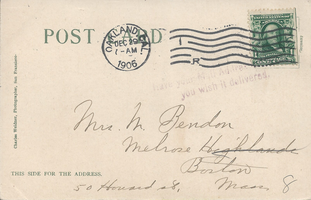 POST CARD
OAKLAND, CAL.
DEC
1 - AM
1906
1
R
you wish it delivered.
Mrs. M. Bendon
Melrose Highlands
Boston
50 Howard st, Mass 8
THIS SIDE FOR THE ADDRESS.
Charles Weidner, Photographer, San Francisco